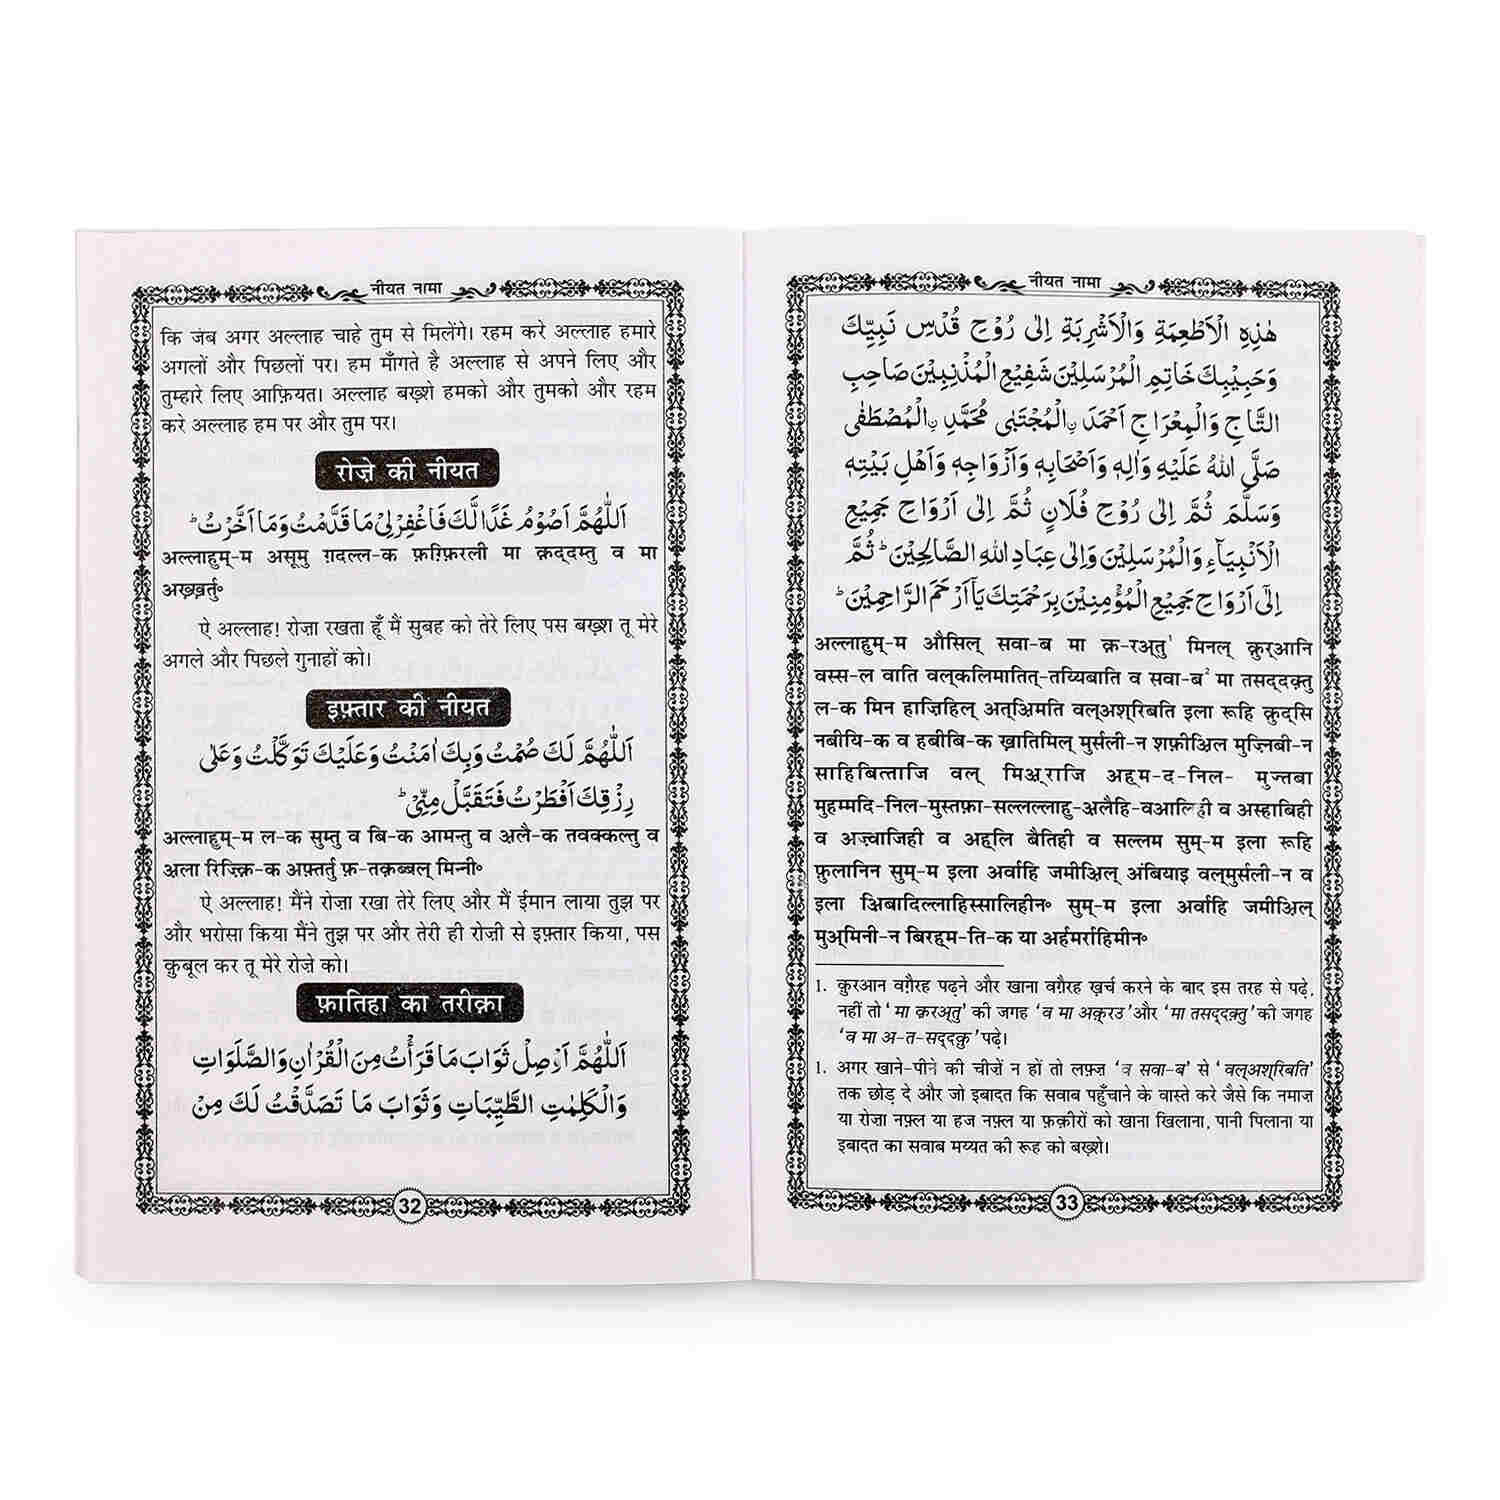 नीयत नामा
कि जब अगर अल्लाह चाहे तुम से मिलेंगे। रहम करे अल्लाह हमारे
अगलों और पिछलों पर। हम माँगते है अल्लाह से अपने लिए और
तुम्हारे लिए आफ़ियत। अल्लाह बख़्शे हमको और तुमको और रहम
करे अल्लाह हम पर और तुम पर।
रोज़े की नीयत
اَللّٰهُمَّ اَصُوْمُ غَدًا لَّكَ فَاغْفِرْلِيْ مَا قَدَّمْتُ وَمَا اَخَّرْتُ ؕ
अल्लाहुम्-म असूमु ग़दल्ल-क फ़ग़्फ़िरली मा क़द्दम्तु व मा
अख़्ख़र्तु॰
ऐ अल्लाह! रोज़ा रखता हूँ मैं सुबह को तेरे लिए पस बख़्श तू मेरे
अगले और पिछले गुनाहों को।
इफ़्तार की नीयत
اَللّٰهُمَّ لَكَ صُمْتُ وَبِكَ اٰمَنْتُ وَعَلَيْكَ تَوَكَّلْتُ وَعَلٰى
رِزْقِكَ اَفْطَرْتُ فَتَقَبَّلْ مِنِّيْ ؕ
अल्लाहुम्-म ल-क सुम्तु व बि-क आमन्तु व अ़लै-क तवक्कल्तु व
अ़ला रिज़्क़ि-क अफ़्तर्तु फ़-तक़ब्बल् मिन्नी॰
ऐ अल्लाह! मैंने रोज़ा रखा तेरे लिए और मैं ईमान लाया तुझ पर
और भरोसा किया मैंने तुझ पर और तेरी ही रोज़ी से इफ़्तार किया, पस
क़ुबूल कर तू मेरे रोज़े को।
फ़ातिहा का तरीक़ा
اَللّٰهُمَّ اَوْصِلْ ثَوَابَ مَا قَرَأْتُ مِنَ الْقُرْاٰنِ وَالصَّلَوَاتِ
وَالْكَلِمٰتِ الطَّيِّبَاتِ وَثَوَابَ مَا تَصَدَّقْتُ لَكَ مِنْ
32
नीयत नामा
هٰذِهِ الْاَطْعِمَةِ وَالْاَشْرِبَةِ اِلٰى رُوْحِ قُدْسِ نَبِيِّكَ
وَحَبِيْبِكَ خَاتِمِ الْمُرْسَلِيْنَ شَفِيْعِ الْمُذْنِبِيْنَ صَاحِبِ
التَّاجِ وَالْمِعْرَاجِ اَحْمَدَ نِ الْمُجْتَبٰى مُحَمَّدِ نِ الْمُصْطَفٰى
صَلَّى اللهُ عَلَيْهِ وَاٰلِهٖ وَاَصْحَابِهٖ وَاَزْوَاجِهٖ وَاَهْلِ بَيْتِهٖ
وَسَلَّمَ ثُمَّ اِلٰى رُوْحِ فُلَانٍ ثُمَّ اِلٰى اَرْوَاحِ جَمِيْعِ
الْاَنْبِيَآءِ وَالْمُرْسَلِيْنَ وَاِلٰى عِبَادِ اللهِ الصَّالِحِيْنَ ؕ ثُمَّ
اِلٰٓى اَرْوَاحِ جَمِيْعِ الْمُؤْمِنِيْنَ بِرَحْمَتِكَ يَآ اَرْحَمَ الرَّاحِمِيْنَ ؕ
अल्लाहुम्-म औसिल् सवा-ब मा क़-रअ्तु¹ मिनल् क़ुर्आनि
वस्स-ल वाति वल्कलिमातित्-तय्यिबाति व सवा-ब² मा तसद्दक़्तु
ल-क मिन हाज़िहिल् अत्अ़िमति वल्अश्रिबति इला रूहि क़ुद्सि
नबीयि-क व हबीबि-क ख़ातिमिल् मुर्सली-न शफ़ीअ़िल मुज़्निबी-न
साहिबित्ताजि वल् मिअ़्राजि अह्म-द-निल- मुज्तबा
मुहम्मदि-निल-मुस्तफ़ा-सल्लल्लाहु-अ़लैहि-वआलिही व अस्हाबिही
व अज़्वाजिही व अह्लि बैतिही व सल्लम सुम्-म इला रूहि
फ़ुलानिन सुम्-म इला अर्वाहि जमीअ़िल् अंबियाइ वल्मुर्सली-न व
इला अ़िबादिल्लाहिस्सालिहीन॰ सुम्-म इला अर्वाहि जमीअ़िल्
मुअ्मिनी-न बिरह्म-ति-क या अर्हमर्राहिमीन॰
1. क़ुरआन वग़ैरह पढ़ने और खाना वग़ैरह ख़र्च करने के बाद इस तरह से पढ़े,
नहीं तो 'मा क़रअ्तु' की जगह 'व मा अक़्रउ' और 'मा तसद्दक़्तु' की जगह
'व मा अ-त-सद्दक़ु' पढ़े।
1. अगर खाने-पीने की चीज़ें न हों तो लफ़्ज़ 'व सवा-ब' से 'वल्अश्रिबति'
तक छोड़ दे और जो इबादत कि सवाब पहुँचाने के वास्ते करे जैसे कि नमाज
या रोज़ा नफ़्ल या हज नफ़्ल या फ़क़ीरों को खाना खिलाना, पानी पिलाना या
इबादत का सवाब मय्यत की रूह को बख़्शे।
33